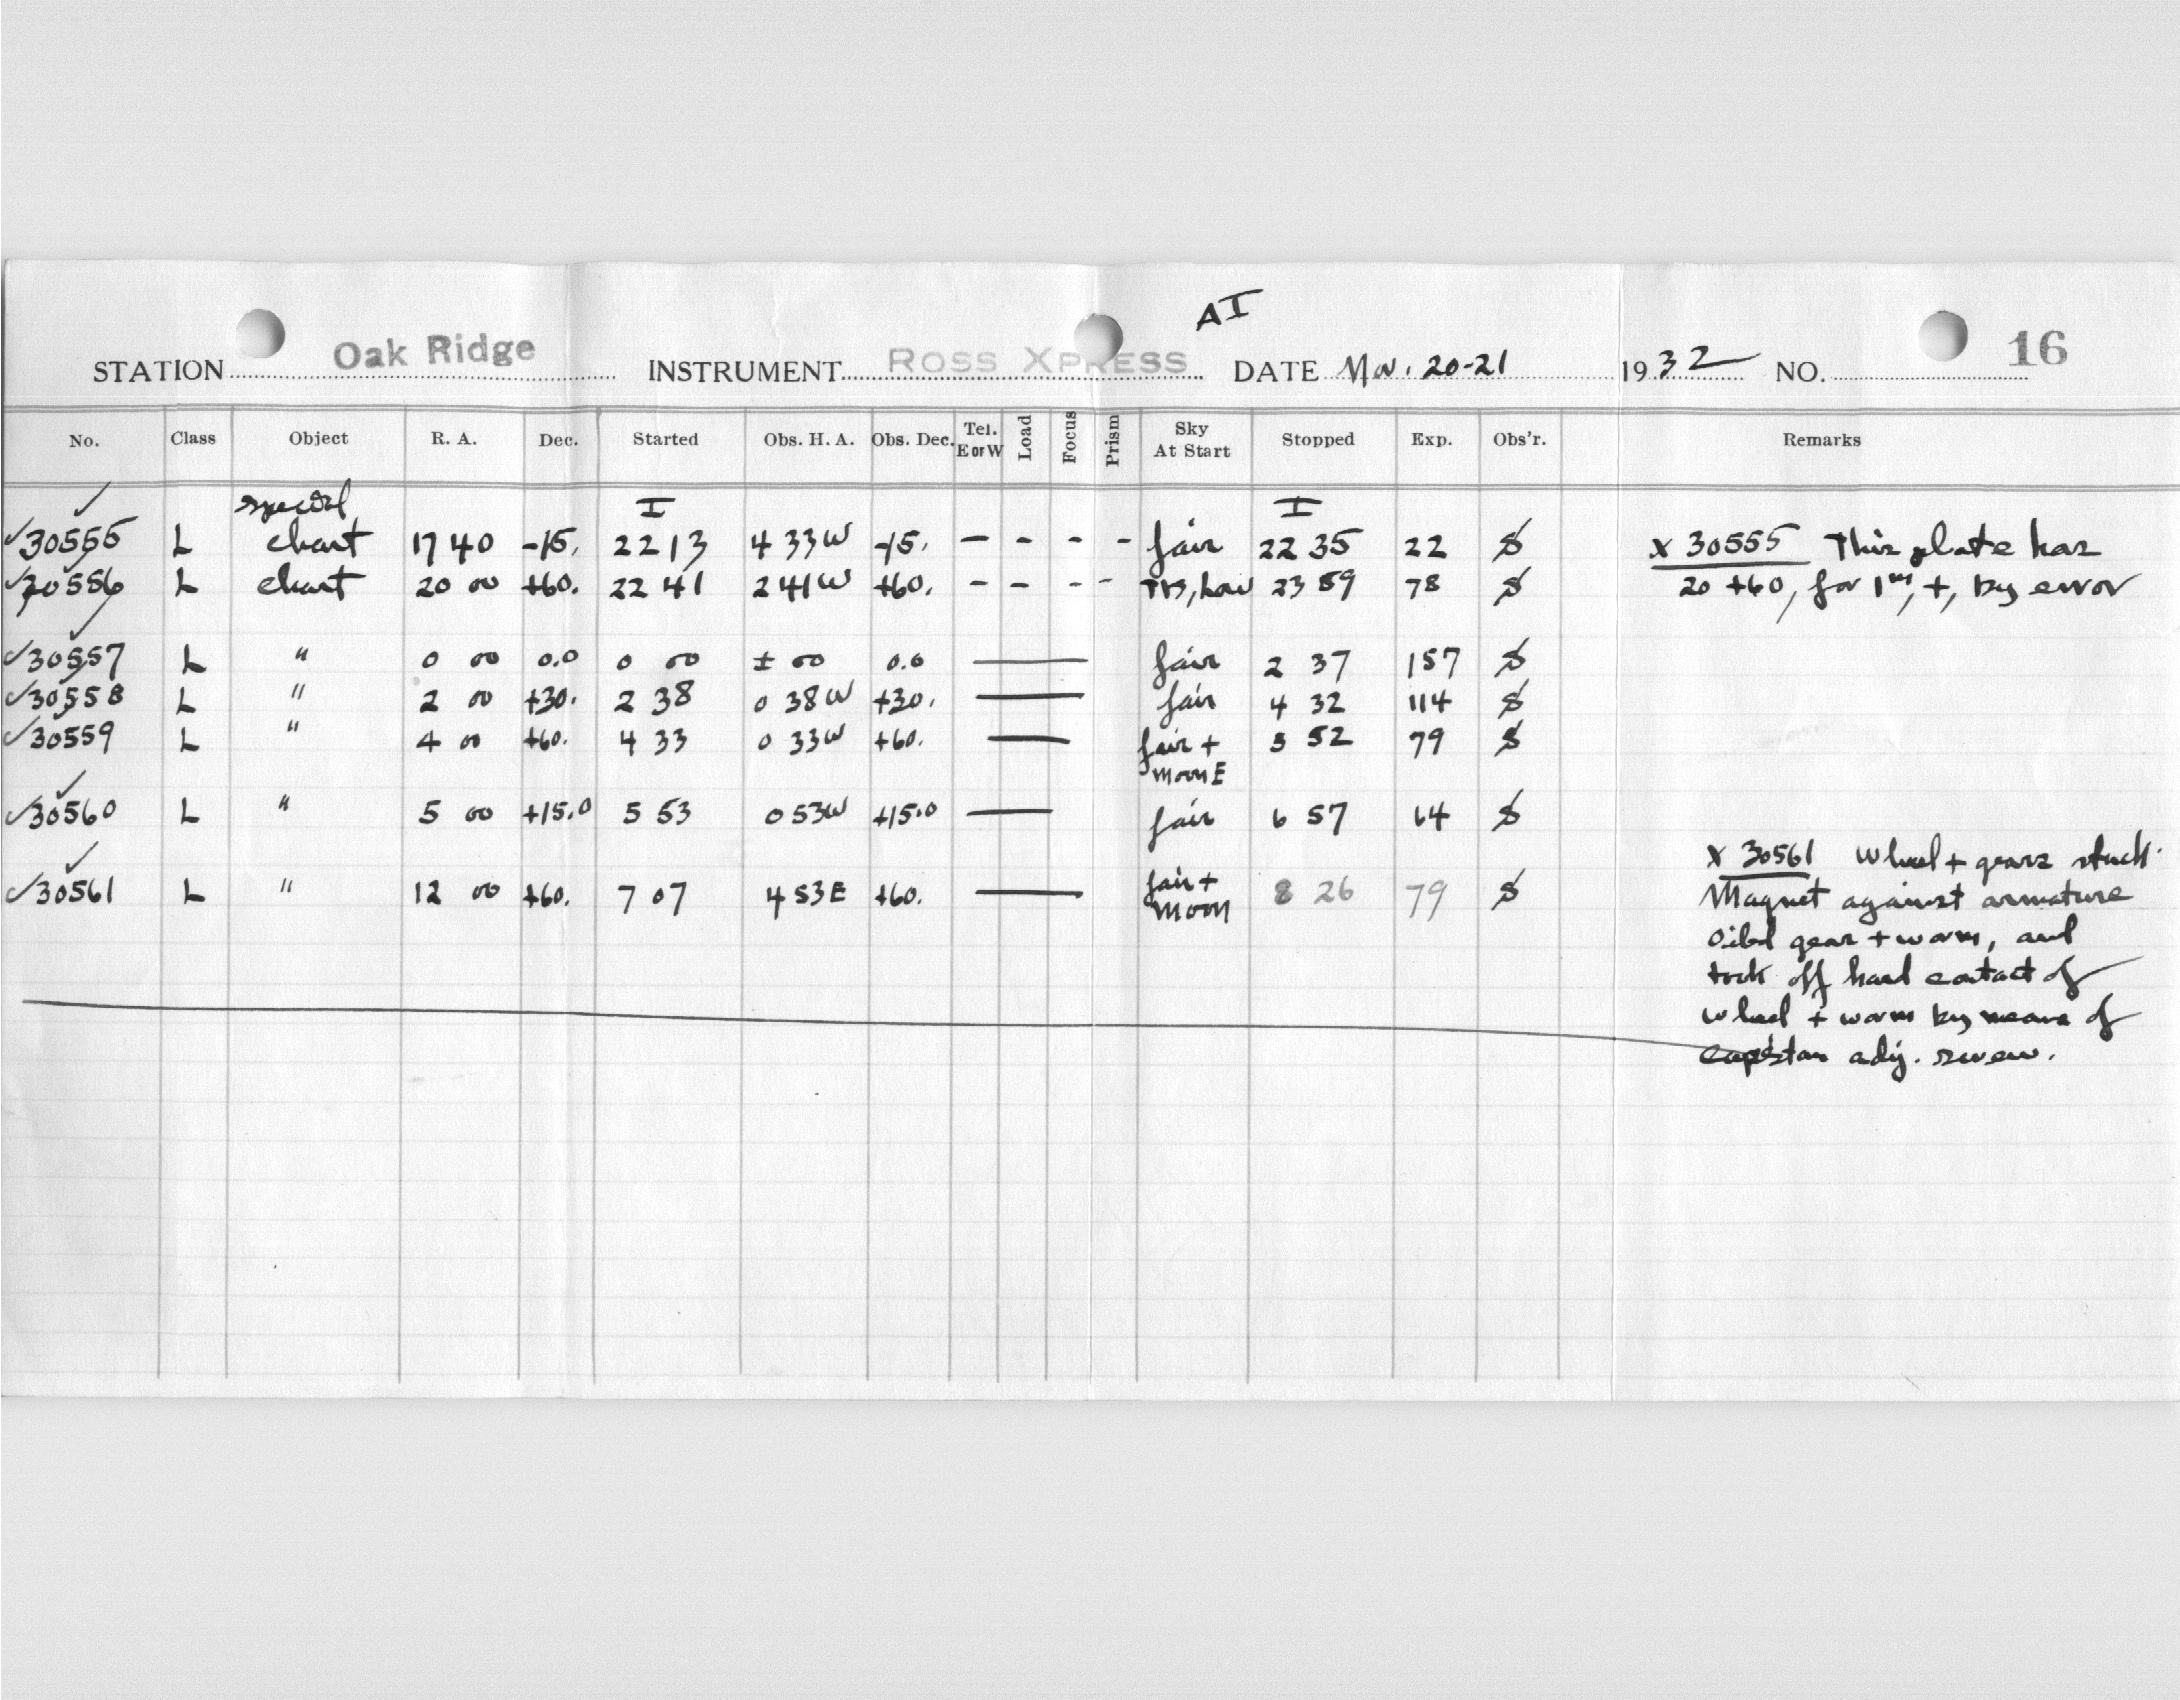 AI
STATION Oak Ridge INSTRUMENT ROSS XPRESS DATE Nov. 20-21 1932 NO. 16
No. Class Object R. A. Dec. Started Obs. H. A. Obs. Dec. Tel. E or W Load Focus Prism Sky At Start Stopped Exp. Obs'r. Remarks
special I I
✓30555 L chart 17 40 -15. 22 13 4 33W -15. - - - - fair 22 35 22 x 30555 This plate has
✓30556 L chart 20 00 +60. 22 41 2 41W +60. - - - - 23 59 78 20 +60, for 1 m, +, by error
✓30557 L " 0 00 0.0 0 00 ± 00 0.0 — fair 2 37 157
✓30558 L " 2 00 +30. 2 38 0 38W +30. — fair 4 32 114
✓30559 L " 4 00 +60. 4 33 0 33W +60. — fair + 5 52 79
moon E
✓30560 L " 5 00 +15.0 5 53 0 53W +15.0 — fair 6 57 64
x 30561 Wheel + gears stuck.
✓30561 L " 12 00 +60. 7 07 4 53E +60. — fair + moon 8 26 79 Magnet against armature
Oiled gear + worm, and
took off hard contact of
wheel + worm by means of
capstan adj. screw.